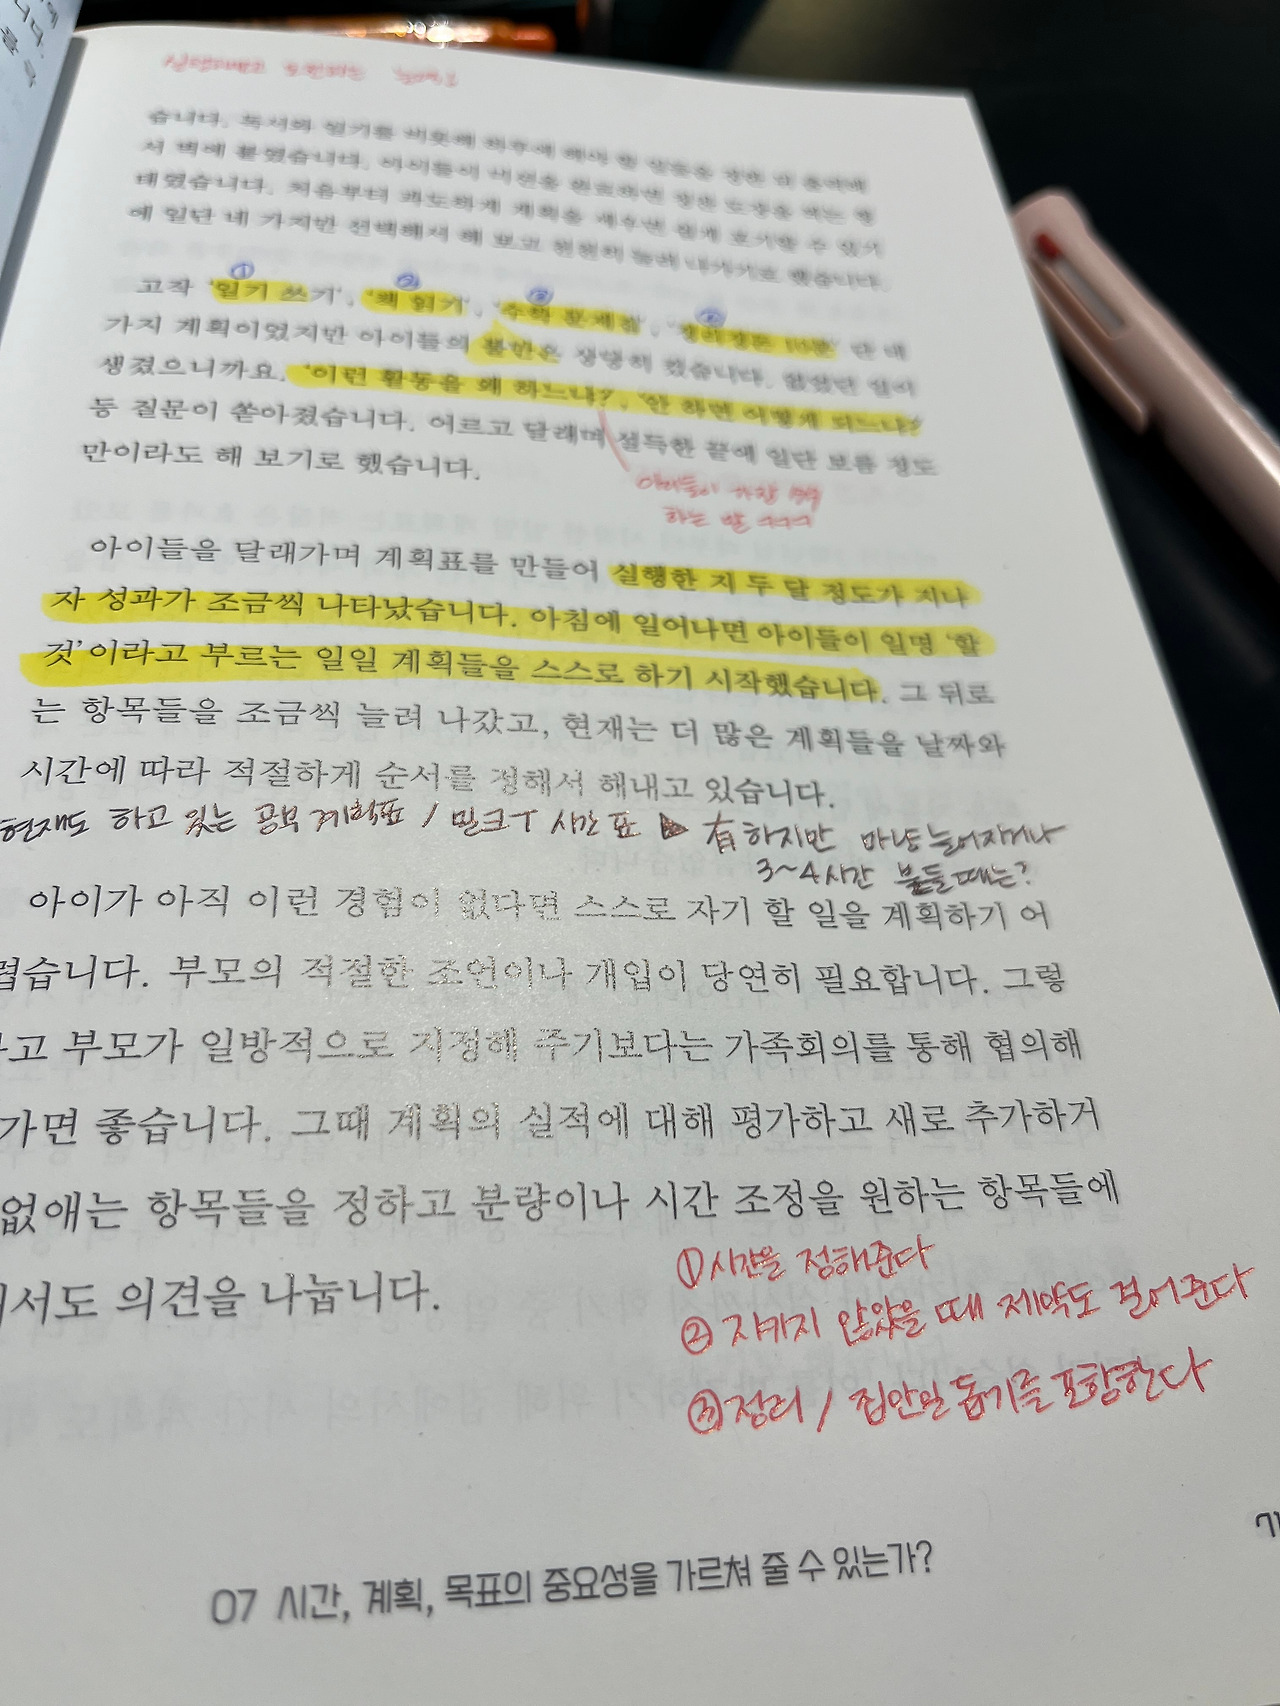 습니다. 독서와 일기를 비롯해 하루에 해야 할 일들을 정한 다 출력해
서 벽에 붙였습니다. 아이들이 미션을 완료하면 칭찬 도장을 찍는 형
태였습니다. 처음부터 과도하게 계획을 세우면 쉽게 포기할 수 있기
에 일단 네 가지만 선택해서 해 보고 천천히 늘려 나가기로 했습니다.
① ② ③
고작 '일기 쓰기', '책 읽기', '수학 문제집', '정리정돈 10분' 단 네
가지 계획이었지만 아이들의 불만은 상당히 컸습니다. 없었던 일이
생겼으니까요. '이런 활동을 왜 하느냐?', '안 하면 어떻게 되느냐?'
등 질문이 쏟아졌습니다. 어르고 달래며 설득한 끝에 일단 보름 정도
만이라도 해 보기로 했습니다.
아이들이 가장 많이
하는 말 ㅋㅋㅋ
아이들을 달래가며 계획표를 만들어 실행한 지 두 달 정도가 지나
자 성과가 조금씩 나타났습니다. 아침에 일어나면 아이들이 일명 '할
것'이라고 부르는 일일 계획들을 스스로 하기 시작했습니다. 그 뒤로
는 항목들을 조금씩 늘려 나갔고, 현재는 더 많은 계획들을 날짜와
시간에 따라 적절하게 순서를 정해서 해내고 있습니다.
현재도 하고 있는 공부 계획표 / 밀크T 시간표 ▶ 有 하지만 마냥 늘어지거나
3~4시간 붙들 때는?
아이가 아직 이런 경험이 없다면 스스로 자기 할 일을 계획하기 어
렵습니다. 부모의 적절한 조언이나 개입이 당연히 필요합니다. 그렇
고 부모가 일방적으로 지정해 주기보다는 가족회의를 통해 협의해
가면 좋습니다. 그때 계획의 실적에 대해 평가하고 새로 추가하거
없애는 항목들을 정하고 분량이나 시간 조정을 원하는 항목들에
서도 의견을 나눕니다.
① 시간을 정해준다
② 지키지 않았을 때 제약도 걸어준다
③ 정리 / 집안일 돕기를 포함한다
07 시간, 계획, 목표의 중요성을 가르쳐 줄 수 있는가?